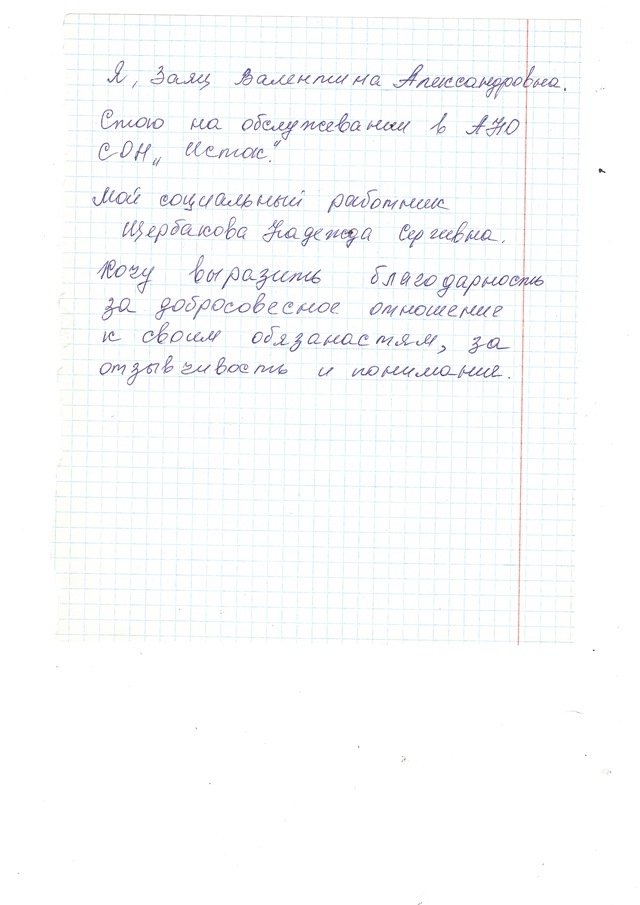 Я, Заяц Валентина Александровна.
Стою на обслужевании в АНО
СОН „Исток".
Мой социальный работник
Щербакова Надежда Сергивна.
Хочу выразить благодарность
за добросовесное отношение
к своим обязанастям, за
отзывчивость и понимание.